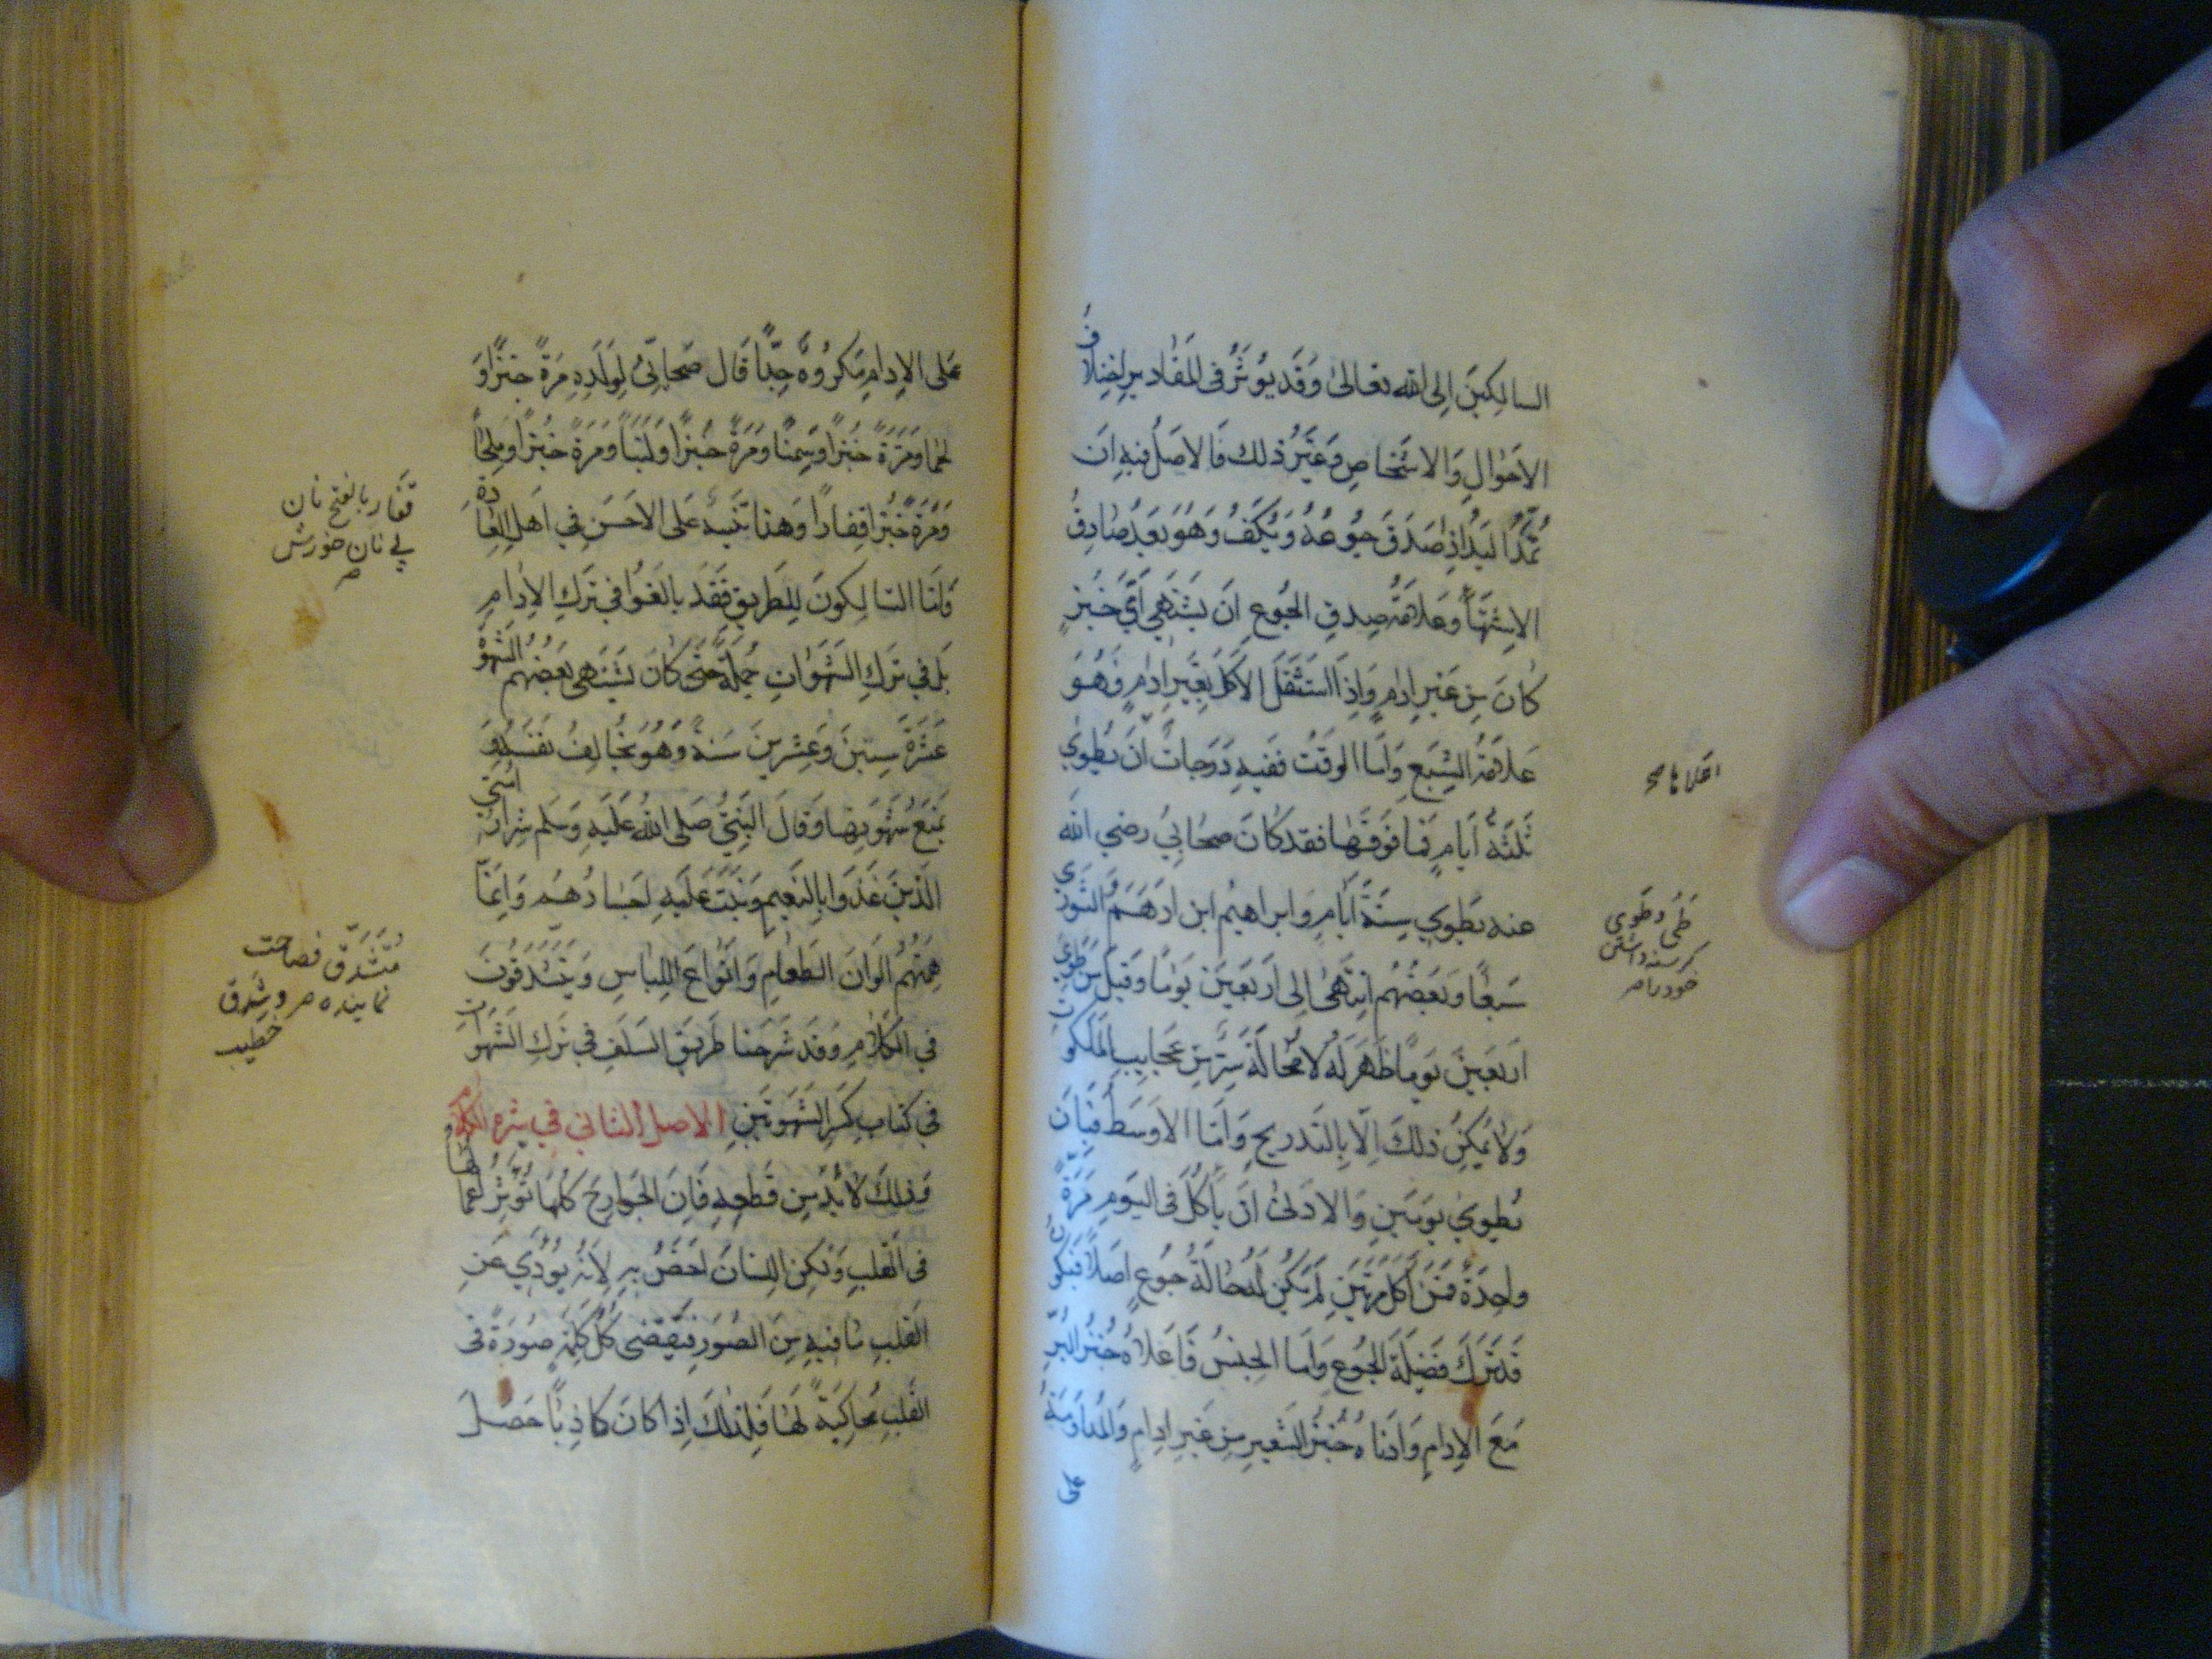 السالكين الى الله تعالى وقد يؤثر فى المقادير اختلاف
الاحوال والاشخاص وغير ذلك فالاصل فيه ان
تمد اليد اذ صدق جوعه ويكف وهو بعد صادق
الاشتهاء وعلامة صدق الجوع ان يشتهي اي خبز
كان من غير ادام واذا استثقل الاكل بغير ادام فهو
علامة الشبع واما الوقت ففيه درجات ان يطوي
ثلثة ايام فما فوقها فقد كان صحابي رضي الله
عنه يطوي ستة ايام وابراهيم ابن ادهم والثوري
سبعا وبعضهم انتهى الى اربعين يوما وقيل من طوي
اربعين يوما ظهر له لا محالة سر من عجايب الملكوت
ولا يمكن ذلك الا بالتدريج واما الاوسط فبان
يطوي يومين والادنى ان ياكل فى اليوم مرة
واحدة فمن اكل مرتين لم يكن له حالة جوع اصلا فيكون
قد ترك فضيلة الجوع واما الجنس فاعلاه خبز البر
مع الادام وادناه خبز الشعير من غير ادام والمداومة
على
اعلاها صح
طى وطوى
كرسنه داشتن
خود را
على الادام مكروه جدا قال صحابي لولده مرة خبزا و
لحما ومرة خبزا وسمنا ومرة خبزا ولبنا ومرة خبزا وملحا
ومرة خبزا قفارا وهذا تنبيه على الاحسن في اهل العادة
واما السالكون للطريق فقد بالغوا في ترك الادام
بل في ترك الشهوات جملة حتى كان يشتهى بعضهم الشهوة
عشرة سنين وعشرين سنة وهو يخالف نفسه و
يمنع شهوتها وقال النبي صلى الله عليه وسلم شرار امتي
الذين غذوا بالنعيم ونبتت عليه اجسادهم وانما
همتهم الوان الطعام وانواع اللباس ويتشدقون
في الكلام وقد شرحنا طريق السلف في ترك الشهوات
في كتاب كسر الشهوتين الاصل الثاني في شره الكلام
وذلك لا بد من قطعه فان الجوارح كلها تؤثر اعمالها
فى القلب ولكن اللسان اخص به لانه يؤدي عن
القلب ما فيه من الصور فيقتضى كل كلمة صورة فى
القلب محاكية لها فلذلك اذا كان كاذبا حصل
قفار بالفتح نان
بي نان خورش
متشدق فصاحت
نماينده وشدق
خطيب